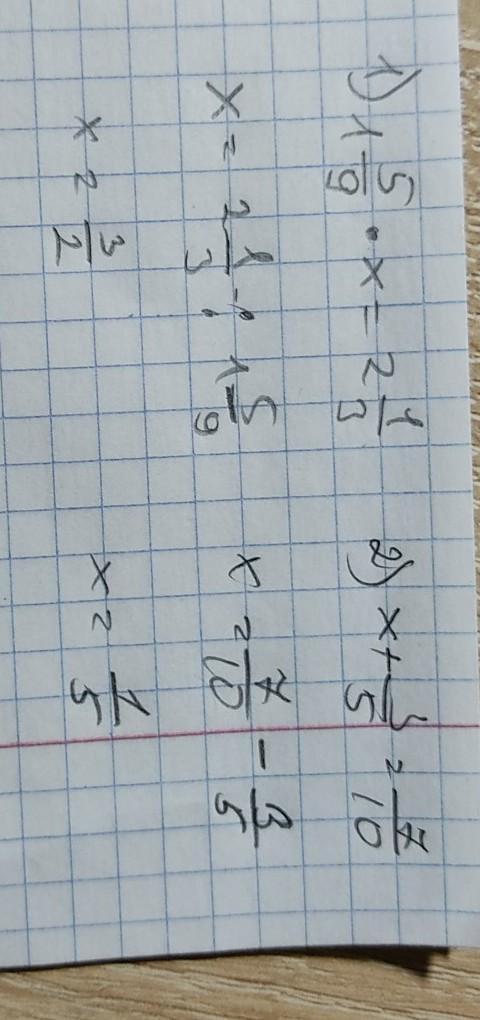 1) 1 5/9 · x = 2 1/3
x = 2 1/3 : 1 5/9
x = 3/2
2) x + /5 = 7/10
x = 7/10 - 3/5
x = 1/5